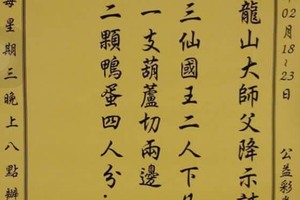 02月18~23日 公益彩
龍山大師父降示
三仙國王二人下
一支葫蘆切兩邊
二顆鴨蛋四人分
每星期三晚上八點辦